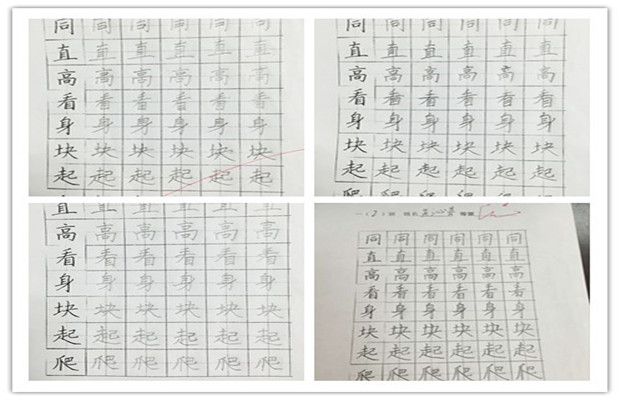 同 同 同 同 同 同
直 直 直 直 直 直
高 高 高 高 高 高
看 看 看 看 看 看
身 身 身 身 身 身
块 块 块 块 块 块
起 起 起 起 起 起
同 同 同 同 同 同
直 直 直 直 直 直
高 高 高 高 高 高
看 看 看 看 看 看
身 身 身 身 身 身
块 块 块 块 块 块
起 起 起 起 起 起
爬 爬 爬 爬 爬 爬
直 直 直 直 直 直
高 高 高 高 高 高
看 看 看 看 看 看
身 身 身 身 身 身
块 块 块 块 块 块
起 起 起 起 起 起
爬 爬 爬 爬 爬 爬
一( )班 姓名 等第
同 同 同 同 同 同
直 直 直 直 直 直
高 高 高 高 高 高
看 看 看 看 看 看
身 身 身 身 身 身
块 块 块 块 块 块
起 起 起 起 起 起
爬 爬 爬 爬 爬 爬